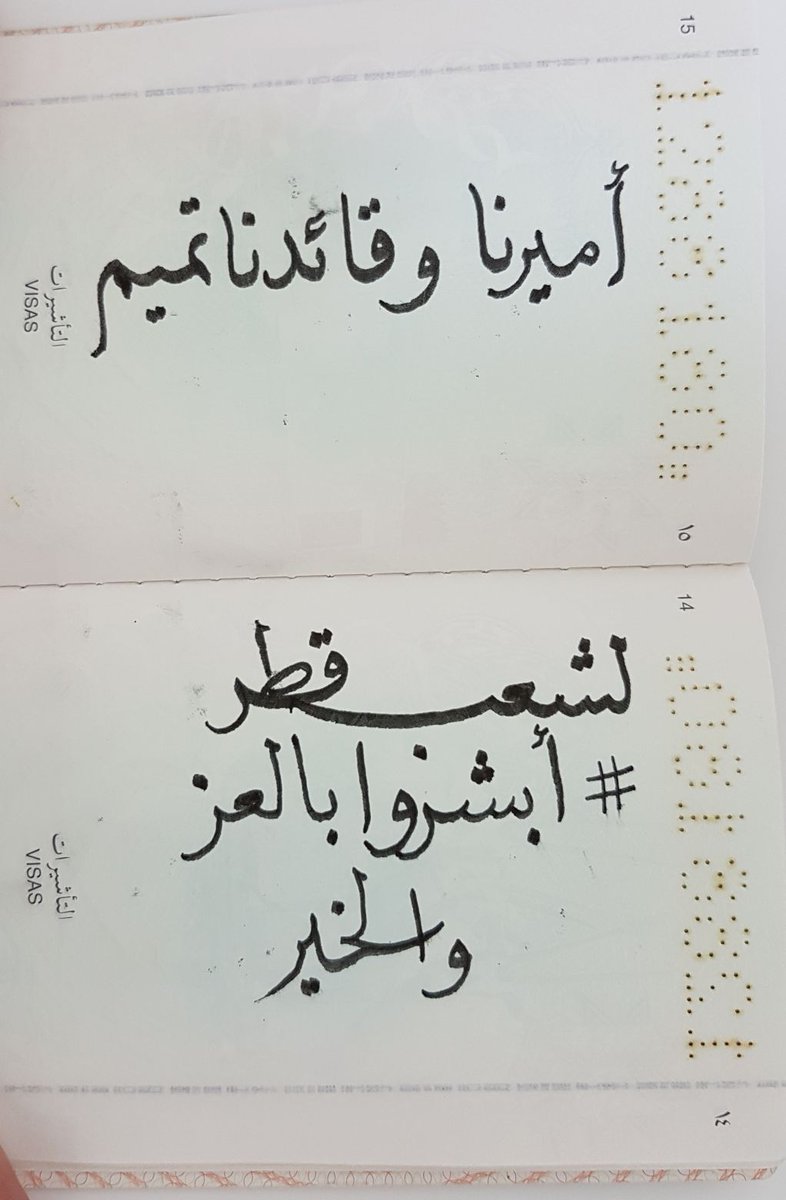 15
أميرنا وقائدنا تميم
التأشيرات
VISAS
١٥
14
لشعب قطر
# أبشروا بالعز
والخير
التأشيرات
VISAS
١٤